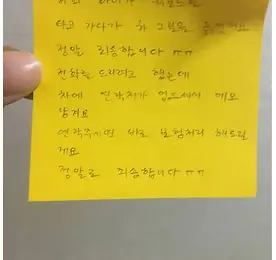 저희 아이가
타고 가다가 차 그림을 긁었어요
정말 죄송합니다 ㅠㅠ
전화를 드리려고 했는데
차에 연락처가 없으셔서 메모
남겨요
연락주시면 바로 보험처리 해드릴
게요
정말로 죄송합니다 ㅠㅠ